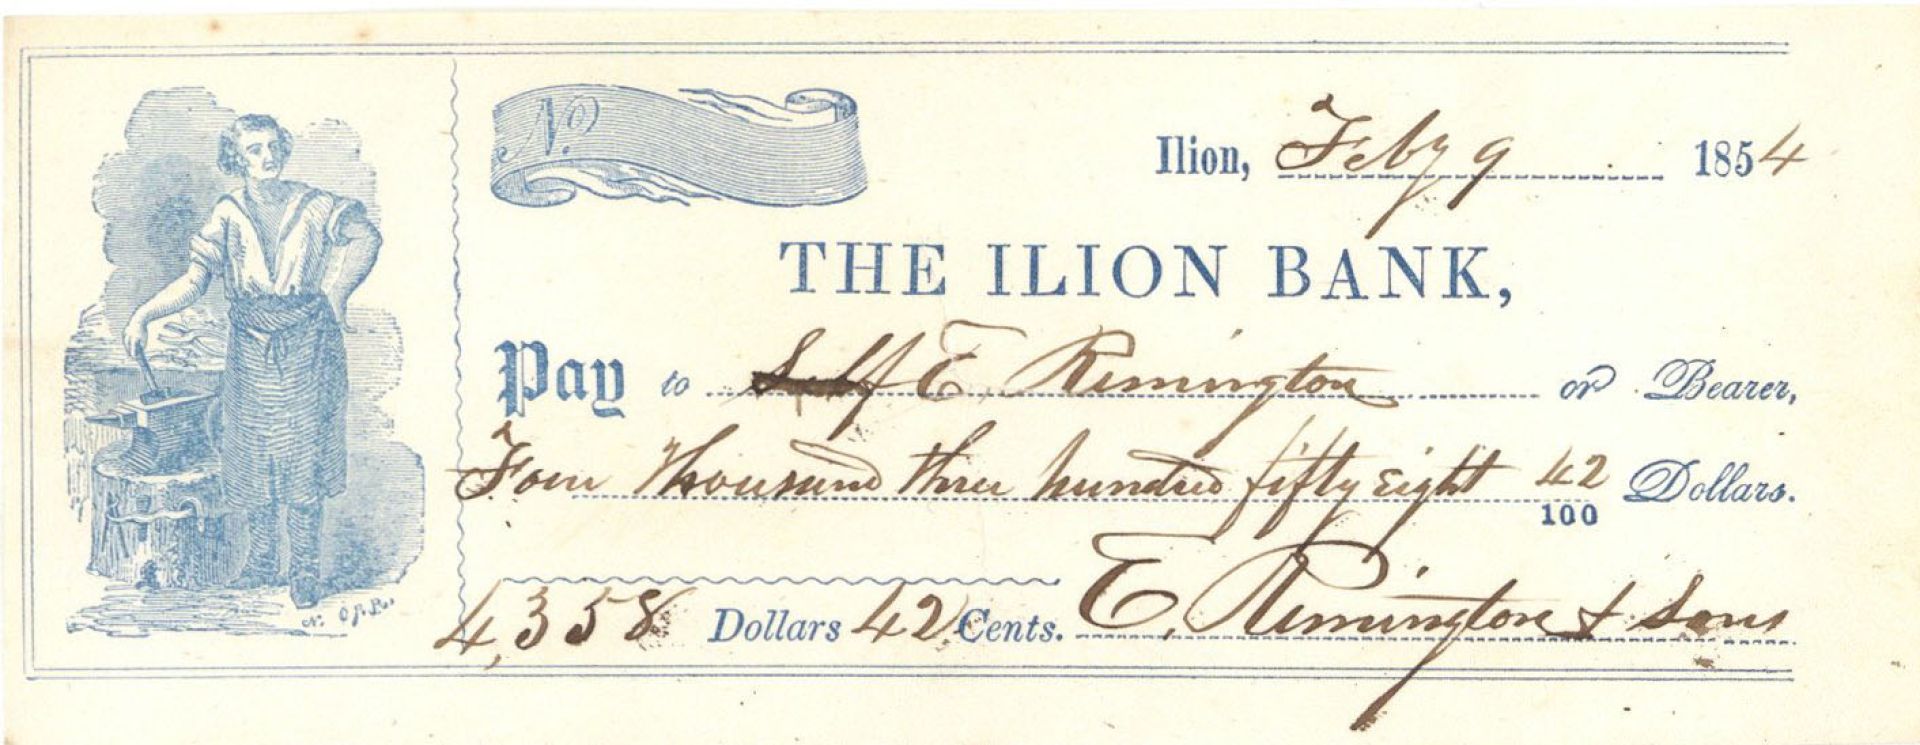 No.
Ilion, Feby 9 1854
THE ILION BANK,
Pay to Self E. Remington or Bearer,
Four Thousand three hundred fifty eight 42/100 Dollars.
4,358 Dollars 42 Cents. E. Remington & Sons